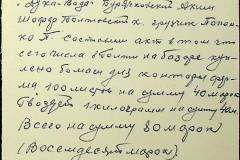 Духа-Вода" Буряковский Яким
Шофер Полтовский Х. грузчик Попен-
ко П. Составили акт в том что
сего числа в  на базаре куп-
лено бомаги для конторы фир-
ма 100 листов на сумму 40 марок
Гвоздей 1 килограмм на сумму 40 м.
Всего на сумму 80 марок
(Восемдесят марок)